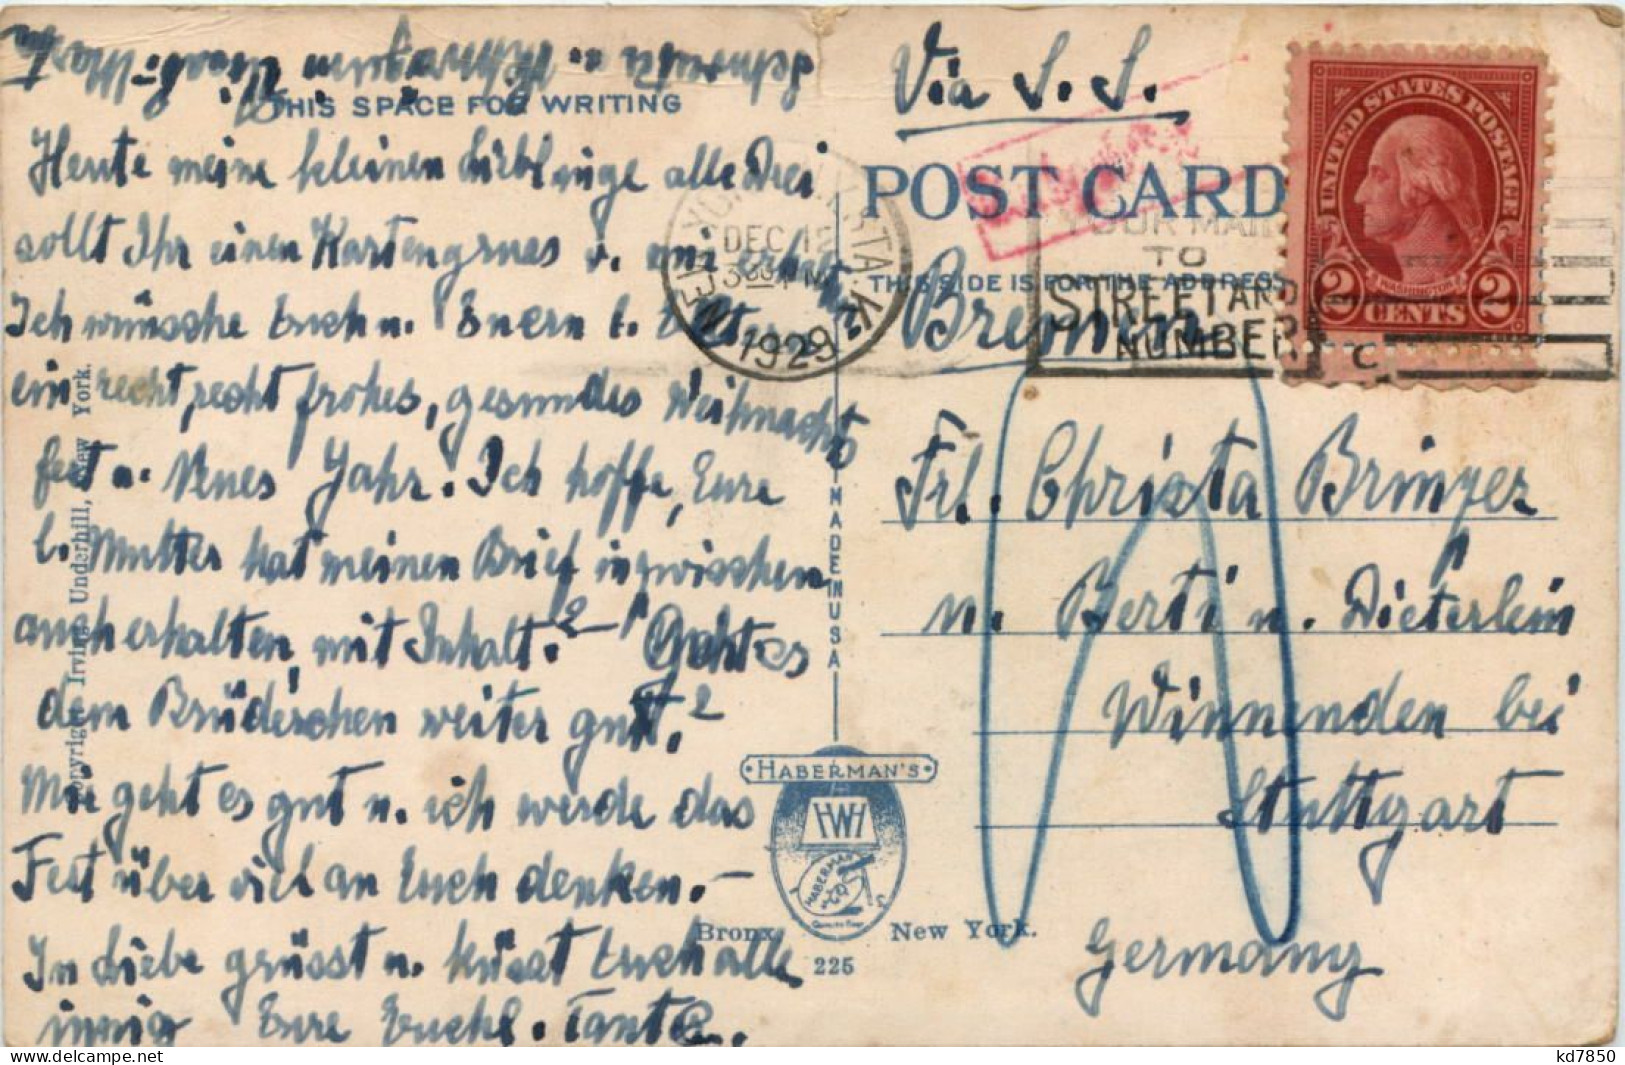 THIS SPACE FOR WRITING
Heute meine kleinen Lieblinge alle Drei
sollt Ihr einen Kartengruss v. mir erhalten.
Ich wünsche Euch u. Euern l. Eltern
ein recht, recht frohes, gesundes Weihnachts
fest u. Neues Jahr. Ich hoffe, Eure
l. Mutter hat meinen Brief inzwischen
auch erhalten, mit Inhalt.? — Geht es
dem Brüderchen weiter gut.?
Mir geht es gut u. ich werde das
Fest über viel an Euch denken. —
In Liebe grüsst u. küsst Euch alle
innig Eure Tante
Copyright Irving Underhill, New York.
MADE IN USA
HABERMAN'S
HWH
Bronx New York.
225
Via S. S.
Bremen
POST CARD
THIS SIDE IS FOR THE ADDRESS
NEW YORK
DEC 12
3 30 PM
1929
STA. K
YOUR MAIL
TO
STREET AND
NUMBER
C
UNITED STATES POSTAGE
WASHINGTON
2 CENTS 2
Frl. Christa Bringer
u. Berti u. Dieterlein
Winnenden bei
Stuttgart
Germany
kd7850